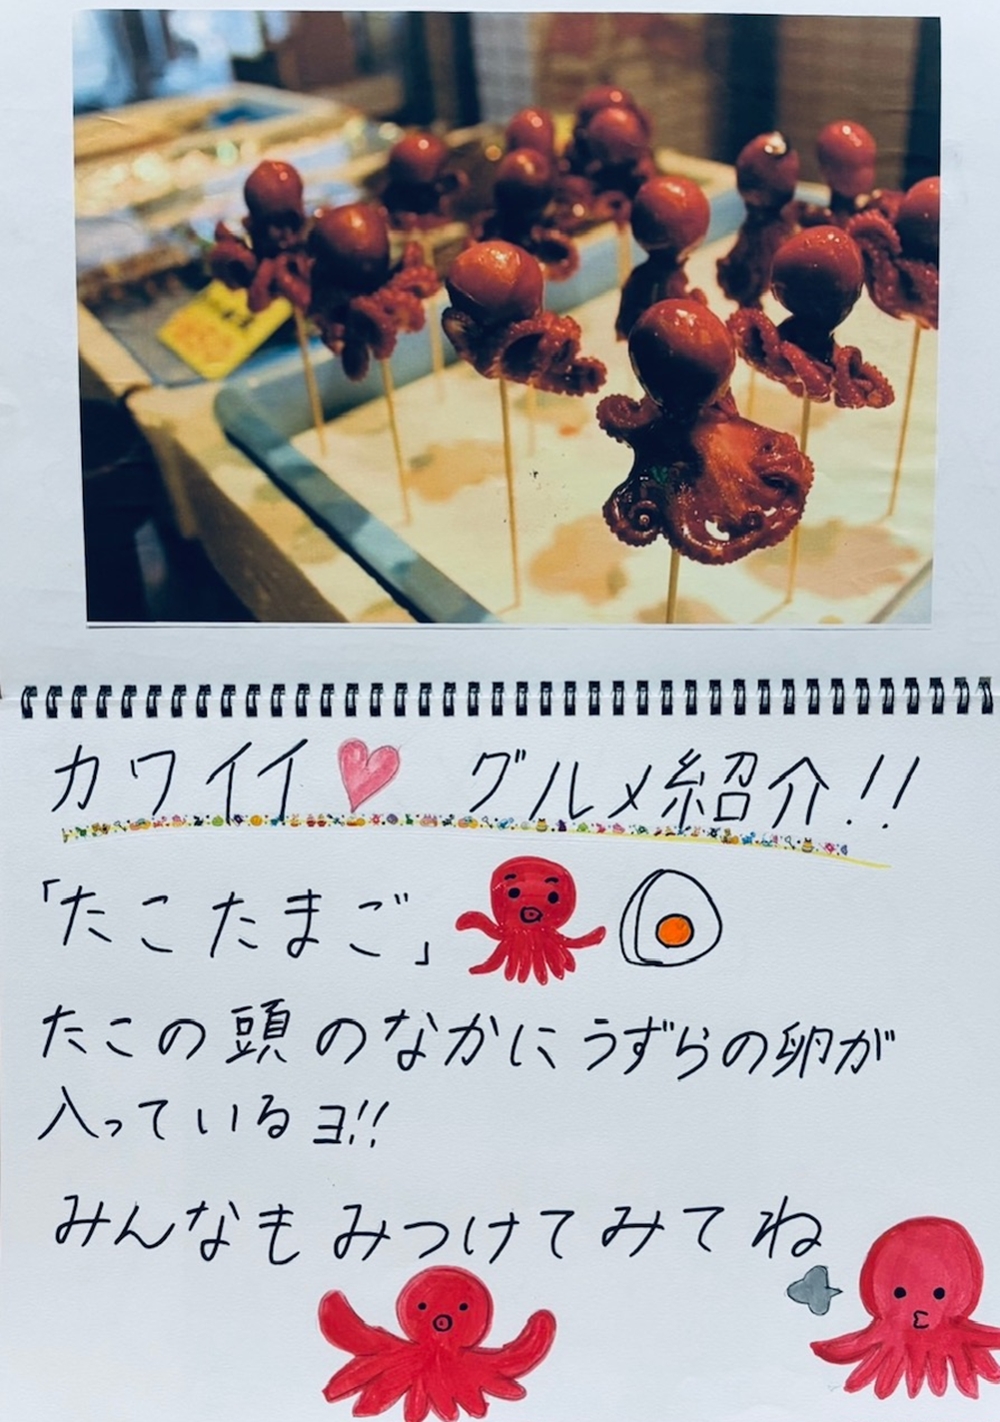 カワイイ グルメ紹介!!
「たこたまご」
たこの頭のなかにうずらの卵が
入っているヨ!!
みんなもみつけてみてね